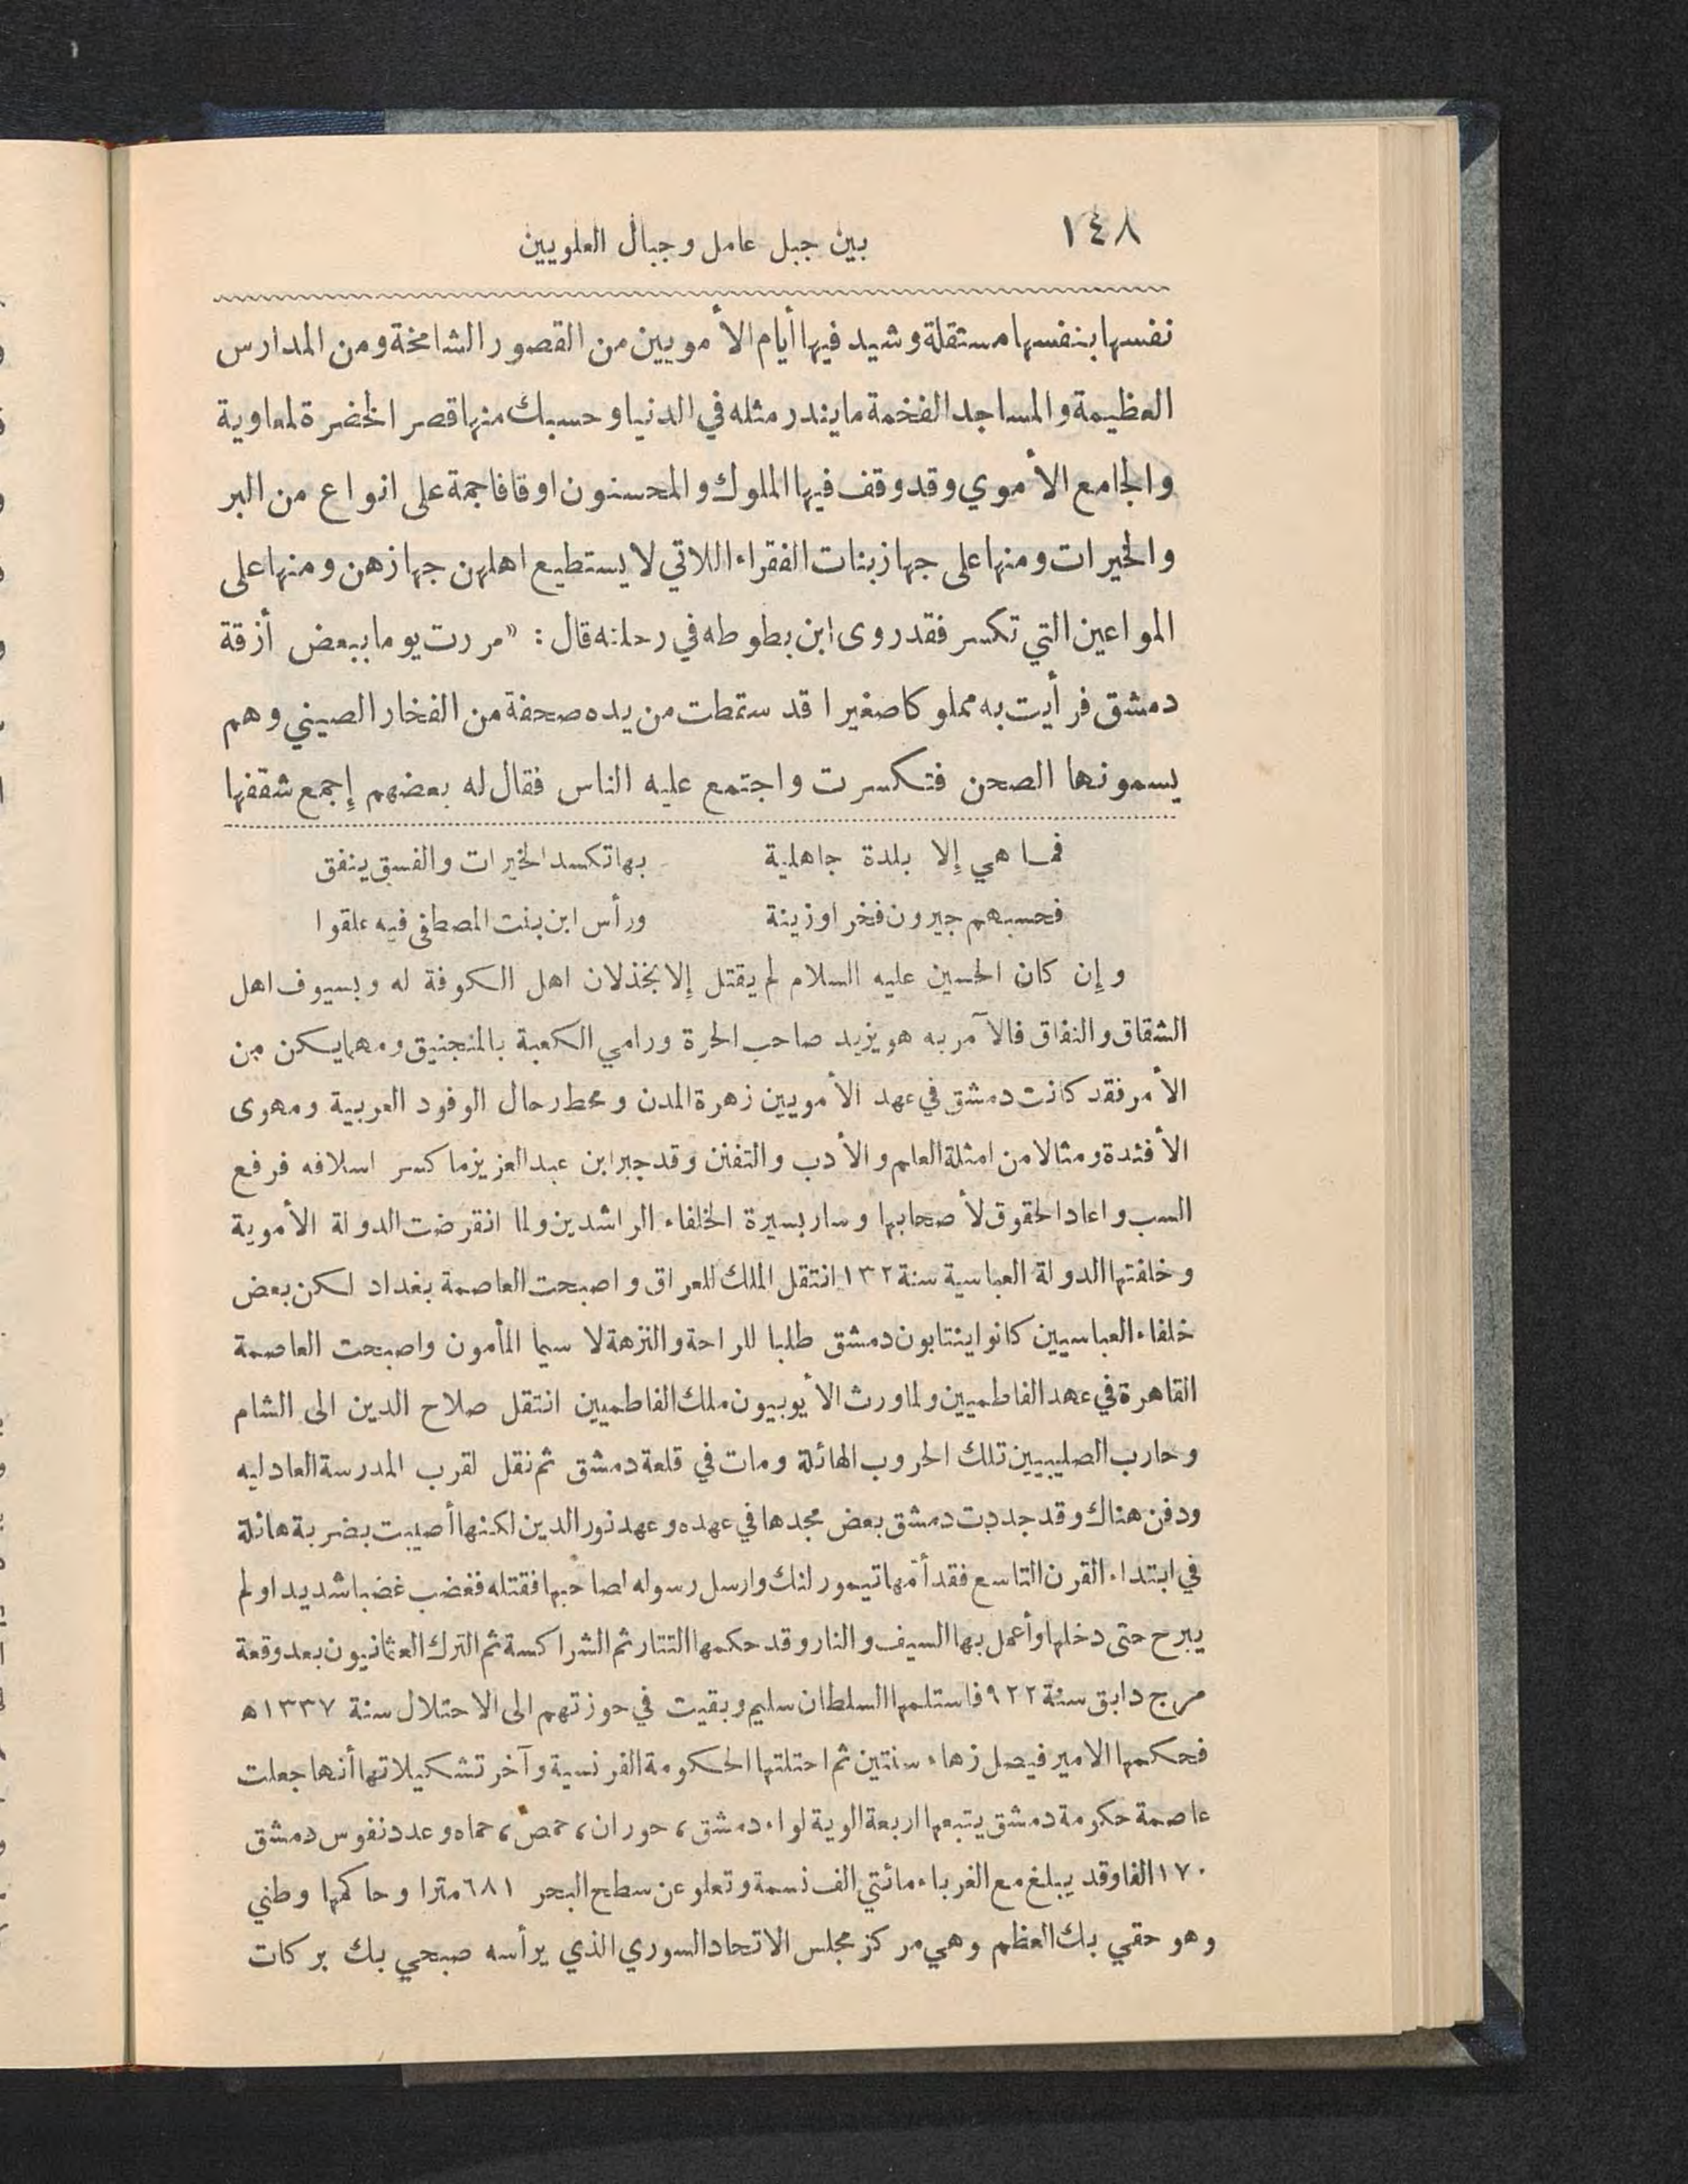 ١٤٨
بين جبل عامل وجبال العلويين
نفسها بنفسها مستقلة وشيد فيها أيام الأمويين من القصور الشامخة ومن المدارس
العظيمة والمساجد الفخمة ما يندر مثله في الدنيا وحسبك منها قصر الخضرة لمعاوية
والجامع الأموي وقد وقف فيها الملوك والمحسنون اوقافا جمة على انواع من البر
والخيرات ومنها على جهاز بنات الفقراء اللاتي لا يستطيع اهلهن جهازهن ومنها على
المواعين التي تكسر فقد روى ابن بطوطه في رحلته قال : «مررت يوما ببعض أزقة
دمشق فرأيت به مملوكا صغيرا قد سقطت من يده صحفة من الفخار الصيني وهم
يسمونها الصحن فتكسرت واجتمع عليه الناس فقال له بعضهم إجمع شقفها
فما هي إلا بلدة جاهلية بها تكسد الخيرات والفسق ينفق
فحسبهم جيرون فخرا وزينة ورأس ابن بنت المصطفى فيه علقوا
وإن كان الحسين عليه السلام لم يقتل إلا بخذلان اهل الكوفة له وبسيوف اهل
الشقاق والنفاق فالآمر به هو يزيد صاحب الحرة ورامي الكعبة بالمنجنيق ومهما يكن من
الأمر فقد كانت دمشق في عهد الأمويين زهرة المدن ومحط رحال الوفود العربية ومهوى
الأفئدة ومثالا من امثلة العلم والأدب والتفنن وقد جبر ابن عبد العزيز ما كسر اسلافه فرفع
السب واعاد الحقوق لأصحابها وسار بسيرة الخلفاء الراشدين ولما انقرضت الدولة الأموية
وخلفتها الدولة العباسية سنة ١٣٢ انتقل الملك للعراق واصبحت العاصمة بغداد لكن بعض
خلفاء العباسيين كانوا ينتابون دمشق طلبا للراحة والنزهة لا سيما المأمون واصبحت العاصمة
القاهرة في عهد الفاطميين ولما ورث الأيوبيون ملك الفاطميين انتقل صلاح الدين الى الشام
وحارب الصليبيين تلك الحروب الهائلة ومات في قلعة دمشق ثم نقل لقرب المدرسة العادليه
ودفن هناك وقد جددت دمشق بعض مجدها في عهده وعهد نور الدين لكنها أصيبت بضربة هائلة
في ابتداء القرن التاسع فقد أمها تيمور لنك وارسل رسوله لصاحبها فقتله فغضب غضبا شديدا ولم
يبرح حتى دخلها وأعمل بها السيف والنار وقد حكمها التتار ثم الشراكسة ثم الترك العثمانيون بعد وقعة
مرج دابق سنة ٩٢٢ فاستلمها السلطان سليم وبقيت في حوزتهم الى الاحتلال سنة ١٣٣٧ ه
فحكمها الامير فيصل زهاء سنتين ثم احتلتها الحكومة الفرنسية وآخر تشكيلاتها أنها جعلت
عاصمة حكومة دمشق يتبعها اربعة الوية لواء دمشق ، حوران ، حمص ، حماه وعدد نفوس دمشق
١٧٠ الفا وقد يبلغ مع الغرباء مائتي الف نسمة وتعلو عن سطح البحر ٦٨١ مترا وحاكمها وطني
وهو حقي بك العظم وهي مركز مجلس الاتحاد السوري الذي يرأسه صبحي بك بركات